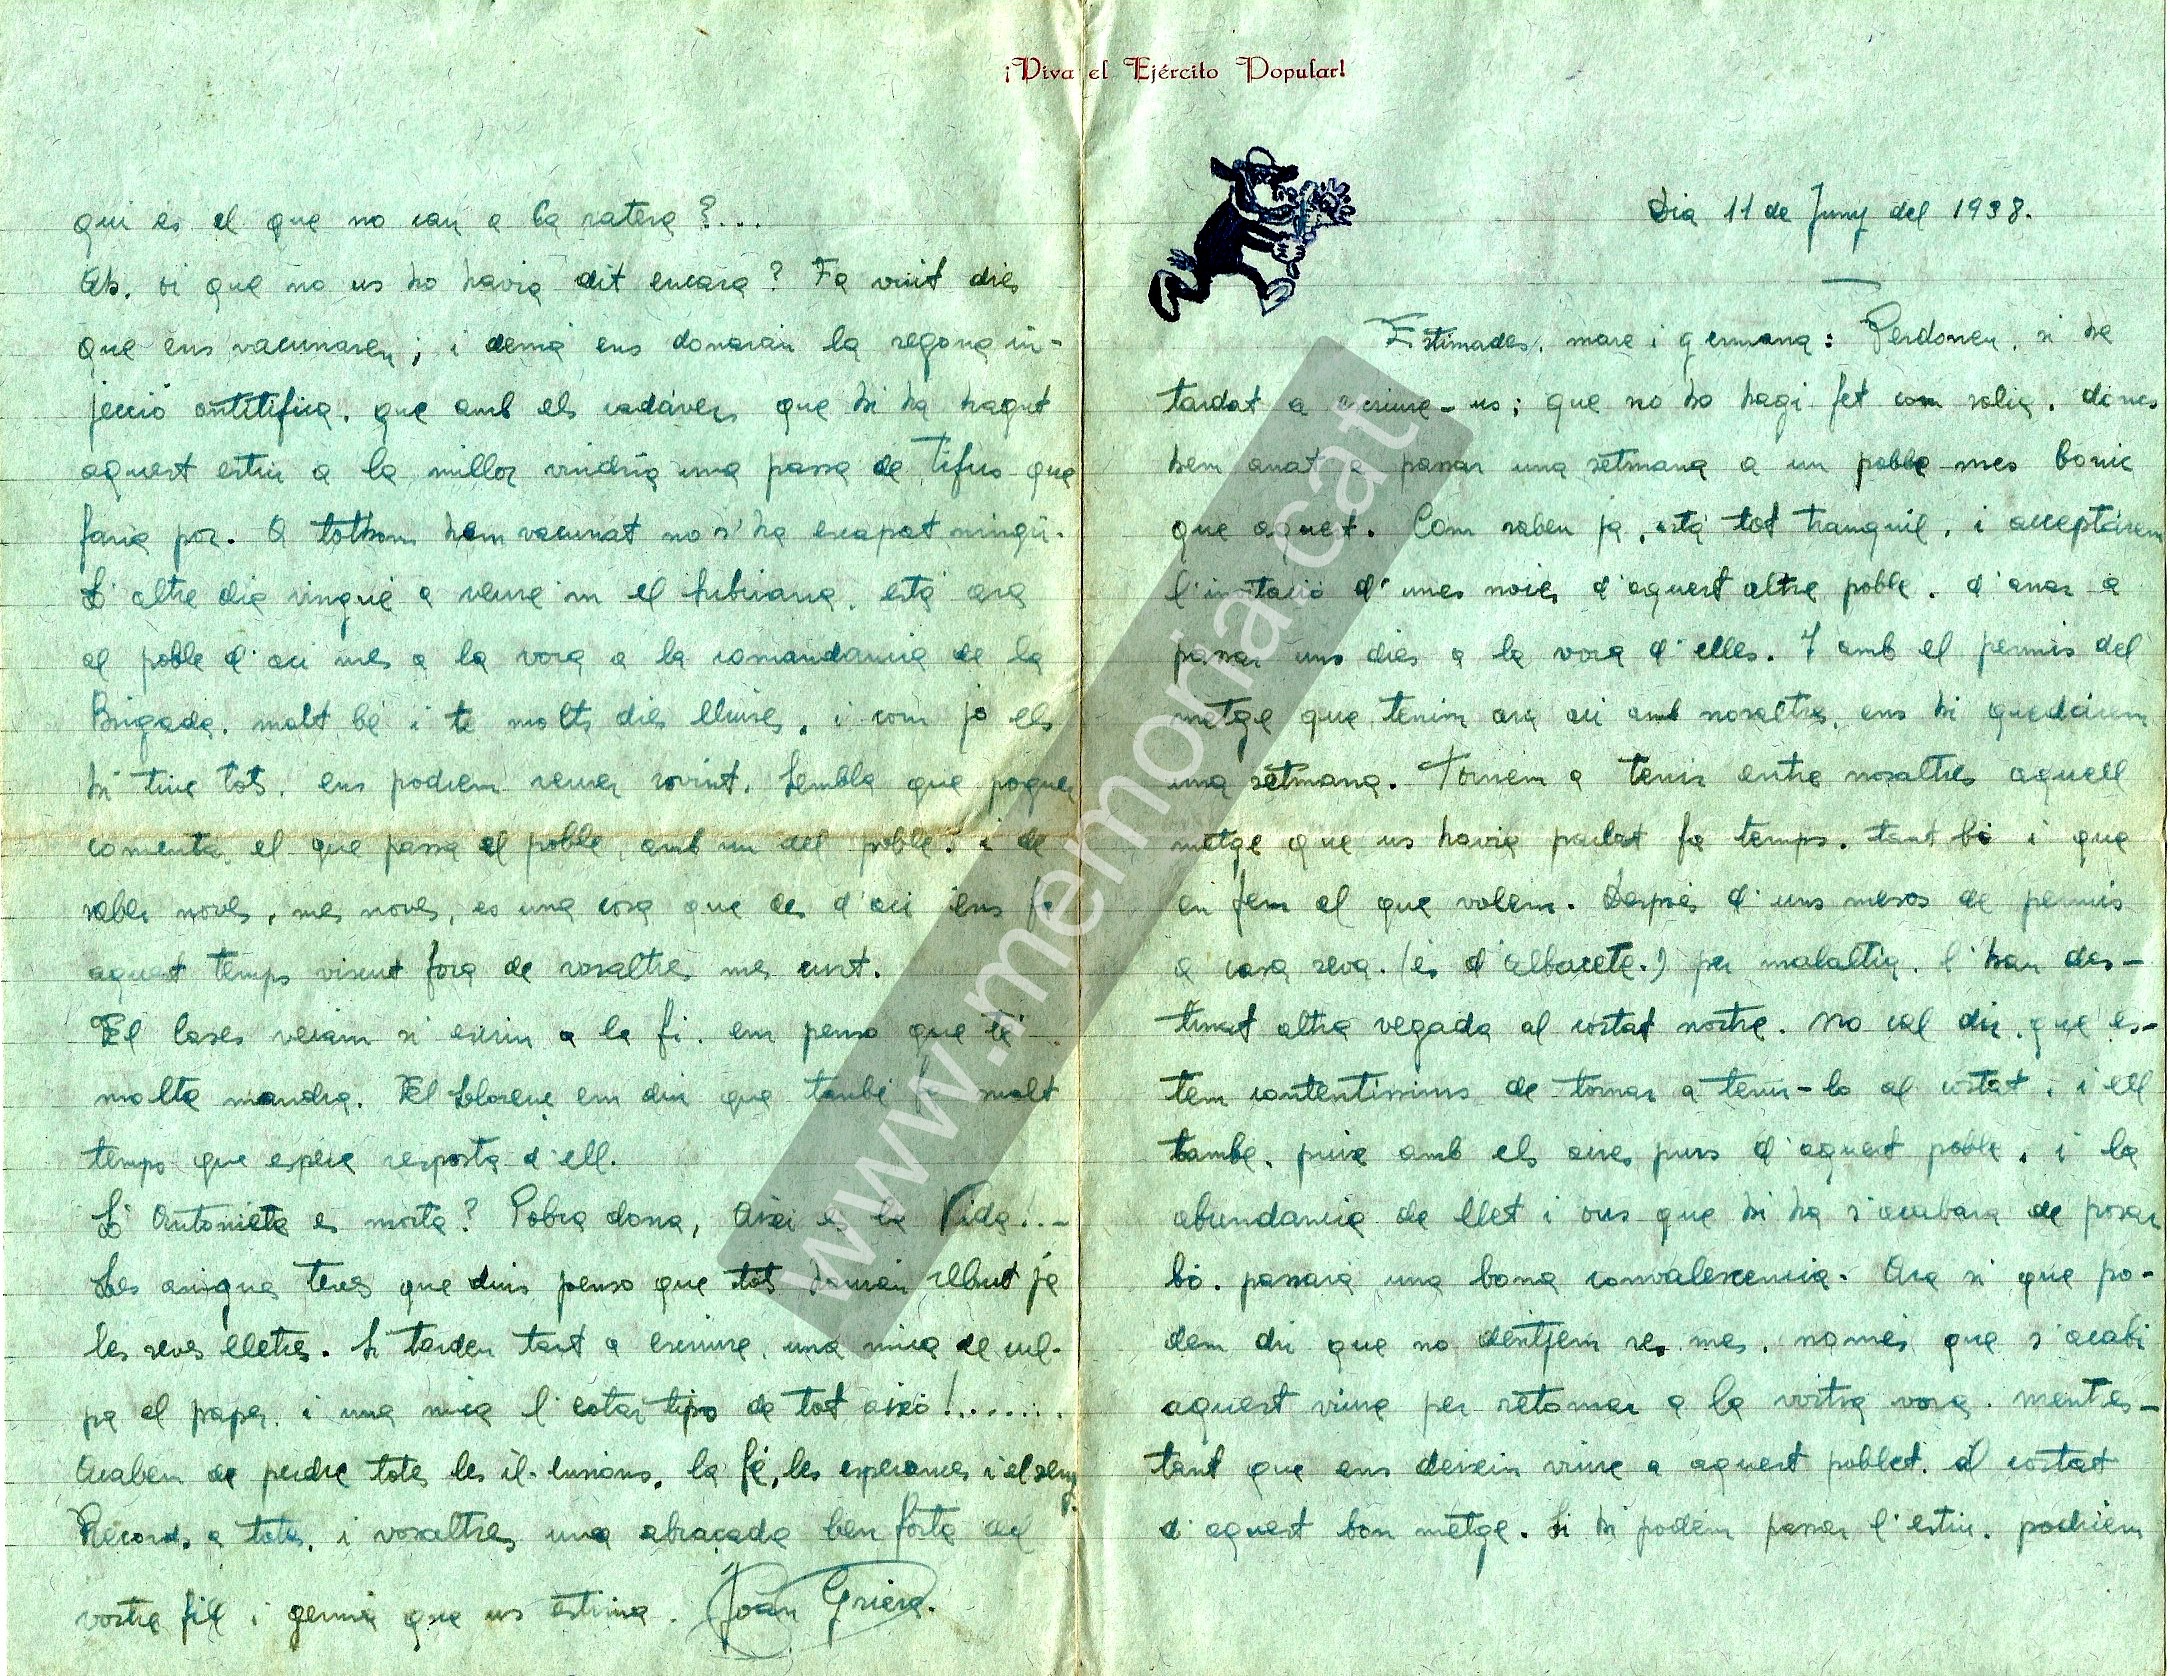 ¡Viva el Ejército Popular!
Dia 11 de Juny del 1938.
Estimades, mare i germana: Perdoneu, si he
tardat a escriure-us; que no ho hagi fet com solia, doncs
hem anat a passar una setmana a un poble mes bonic
que aquest. Com sabeu ja, està tot tranquil, i acceptárem
l'invitació d'unes noies d'aquest altre poble, d'anar a
passar uns dies a la vora d'elles. I amb el permis del
metge que tenim ara aci amb nosaltres, ens hi quedárem
una setmana. Tornem a tenir entre nosaltres aquell
metge que us havia parlat fa temps, tant bó i que
en fem el que volem. Després d'uns mesos de permis
a casa seva, (és d'Albacete.) per malaltia, l'han des-
tinat altra vegada al costat nostre. No cal dir, que es-
tem contentissims de tornar a tenir-lo al costat, i ell
també, puix amb els aires purs d'aquest poble, i la
abundancia de llet i ous que hi ha s'acabara de posar
bó, passará una bona convalescencia. Ara si que po-
dem dir que no dentjem res mes, només que s'acabi
aquest viure per retornar a la vostra vora, mentres-
tant que ens deixin viure a aquest poblet, al costat
d'aquest bon metge. Si hi podem passar l'estiu, podriem
qui és el que no cau a la ratera?...
Ah, si que no us ho havia dit encara? Fa vuit dies
que ens vacunaren; i demá ens donarán la segona in-
jecció antitifica, que amb els cadávers que hi ha hagut
aquest estiu a la millor vindria una passa de Tifus que
faria por. A tothom hem vacunat no s'ha escapat ningú.
L'altre dia vingué a veure'm el Subirana, está ara
al poble d'aci mes a la vora a la comandancia de la
Brigada, molt bé i té molts dies lliures, i com jo els
hi tinc tots, ens podrem veurer sovint. Sembla que poguer
comentar el que passa al poble, amb un del poble, i de
saber noves, mes noves, es una cosa que des d'aci ens fa
aquest temps viscut fora de vosaltres mes curt.
El Cases veiam si escriu a la fi, em penso que té
molta mandra. El Llorenç em diu que també fa molt
temps que espera resposta d'ell.
L'Antonieta es morta? Pobra dona, Aixi es la Vida!..-
Les amigues teves que dius penso que tots haurán rebut ja
les seves lletres. Si tarden tant a escriure, una mica de cul-
pa el paper, i una mica l'estar tips de tot aixó!.......
Acabem de perdre totes les il-lusions, la fé, les esperances i el seny.
Records a tots, i vosaltres una abraçada ben forta del
vostre fill i germá que us estima. Joan Griera.
www.memoria.cat